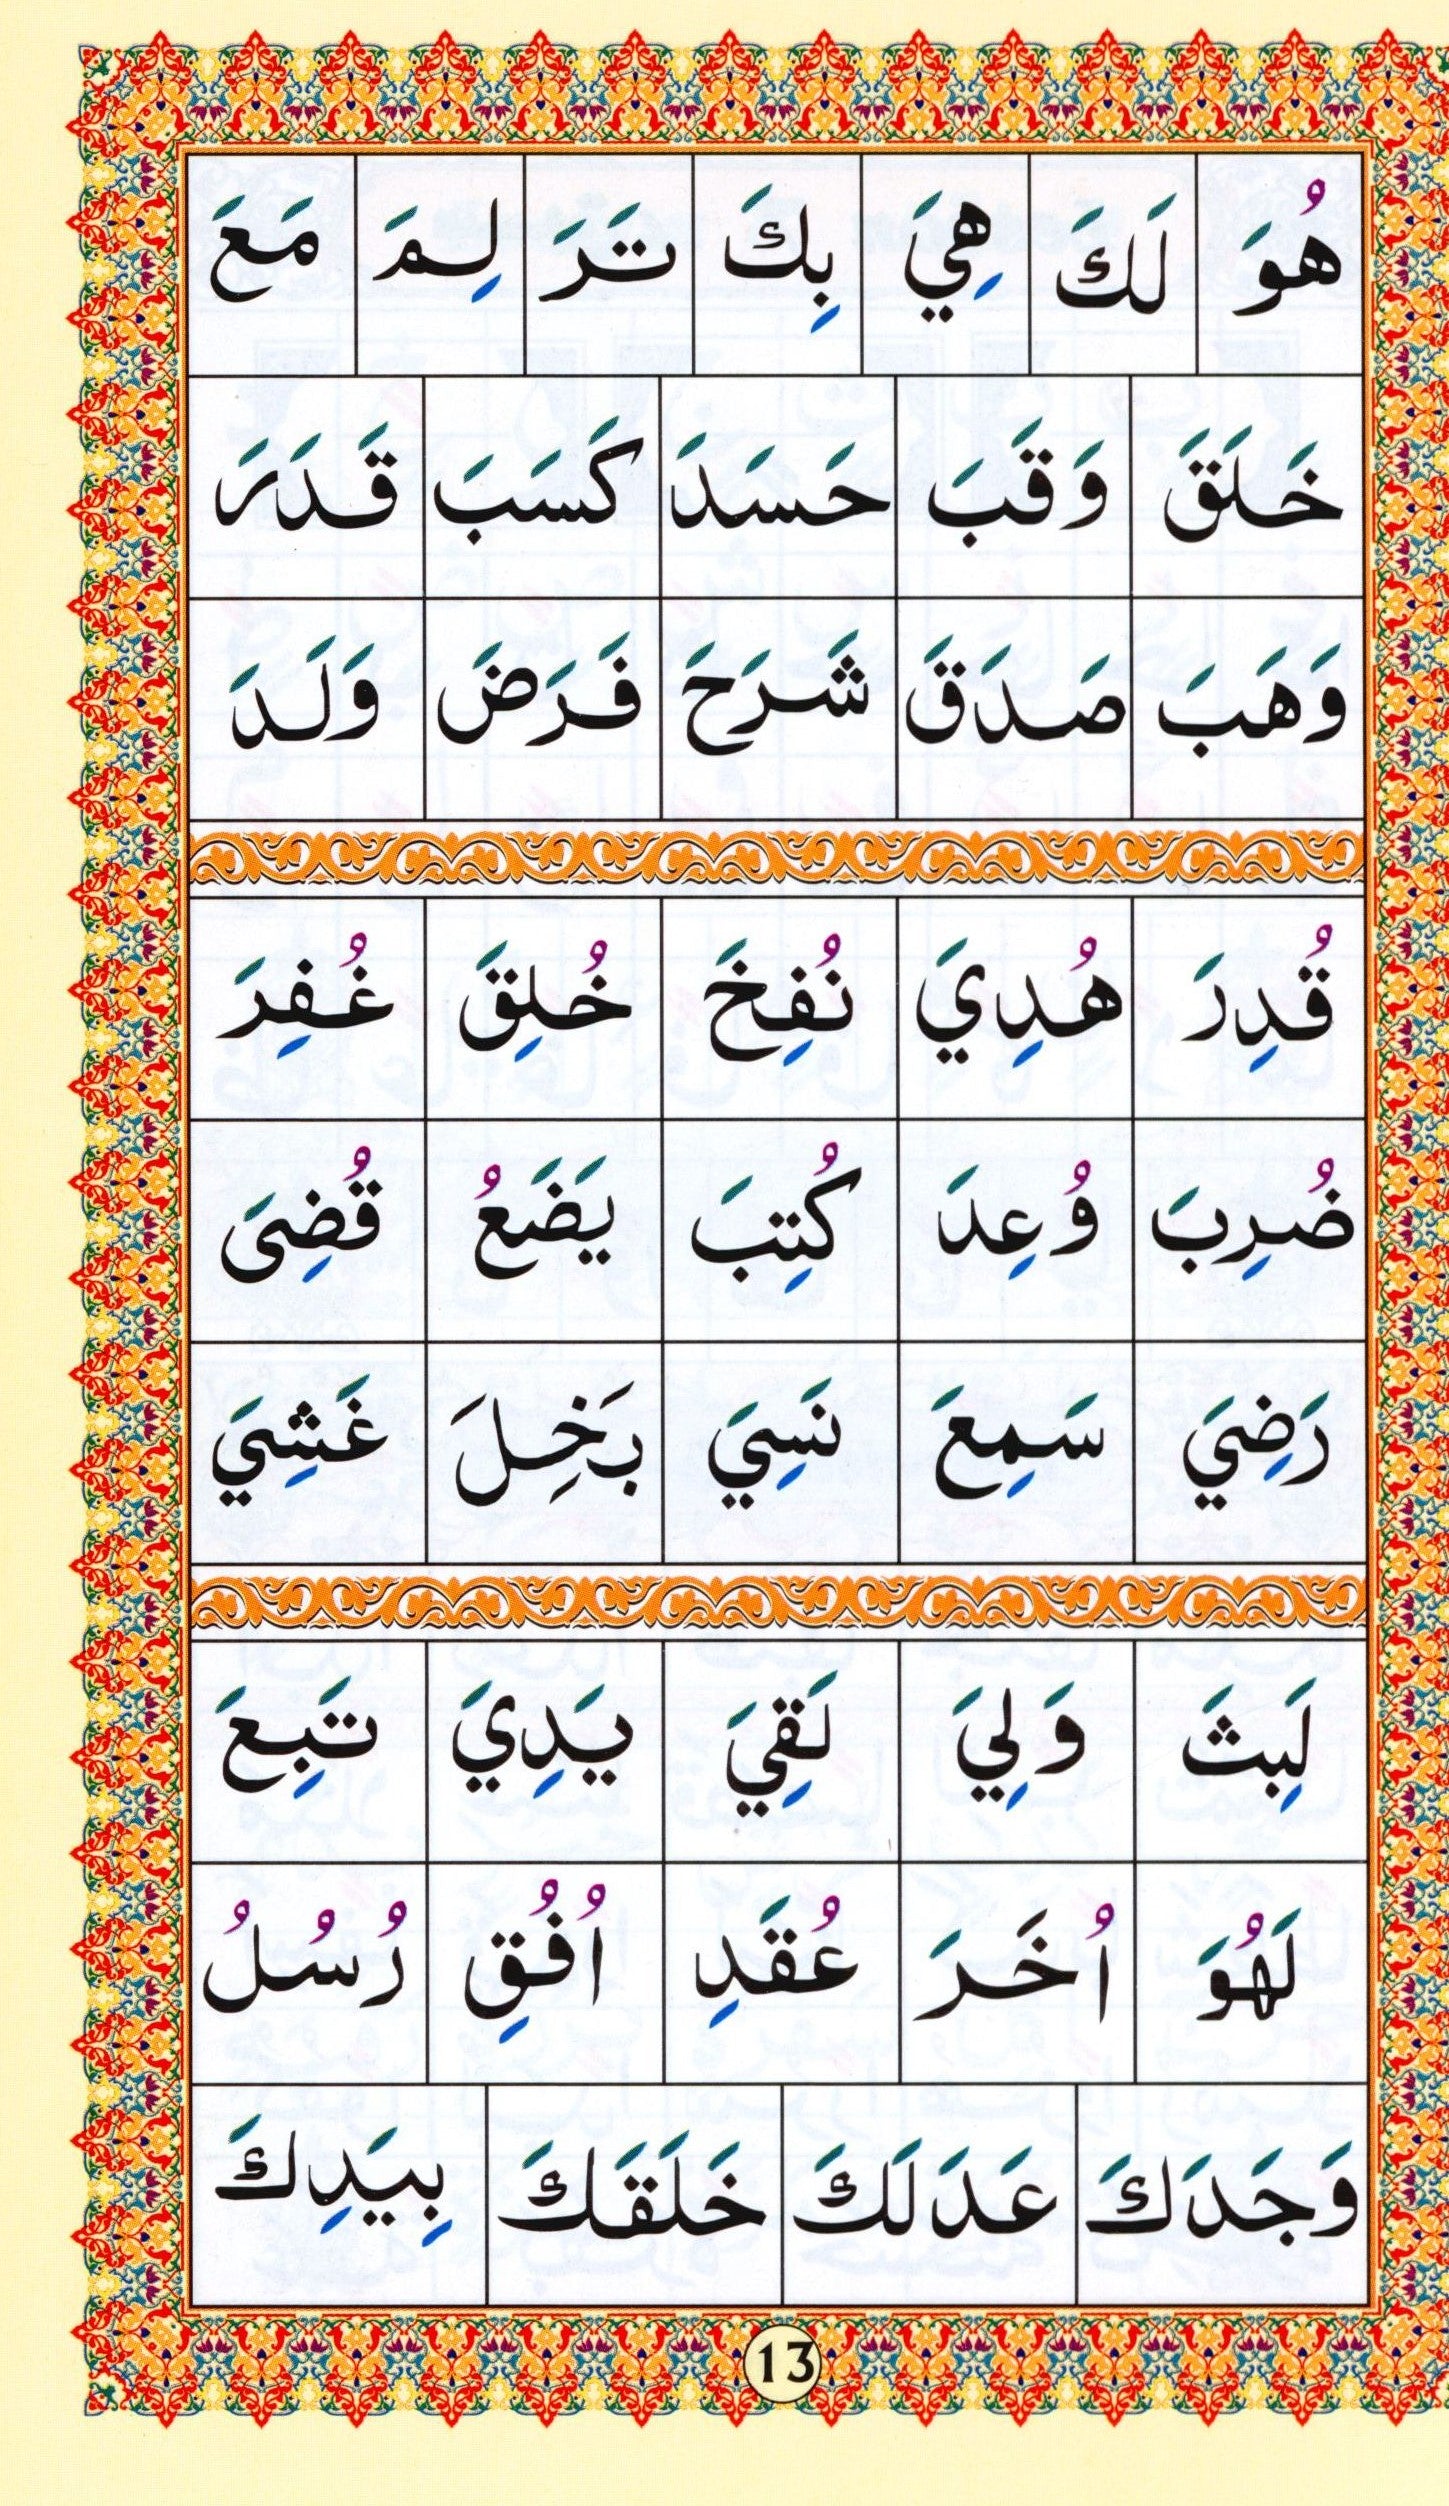 هُوَ لَكَ هِيَ بِكَ تَرَ لِمَ مَعَ
خَلَقَ وَقَبَ حَسَدَ كَسَبَ قَدَرَ
وَهَبَ صَدَقَ شَرَحَ فَرَضَ وَلَدَ
قُدِرَ هُدِيَ نُفِخَ خُلِقَ غُفِرَ
ضُرِبَ وُعِدَ كُتِبَ يَضَعُ قُضِىَ
رَضِيَ سَمِعَ نَسِيَ بَخِلَ غَشِيَ
لَبِثَ وَلِيَ لَقِيَ يَدِيَ تَبِعَ
لَهُوَ اُخَرَ عُقَدِ اُفُقِ رُسُلُ
وَجَدَكَ عَدَلَكَ خَلَقَكَ بِيَدِكَ
13